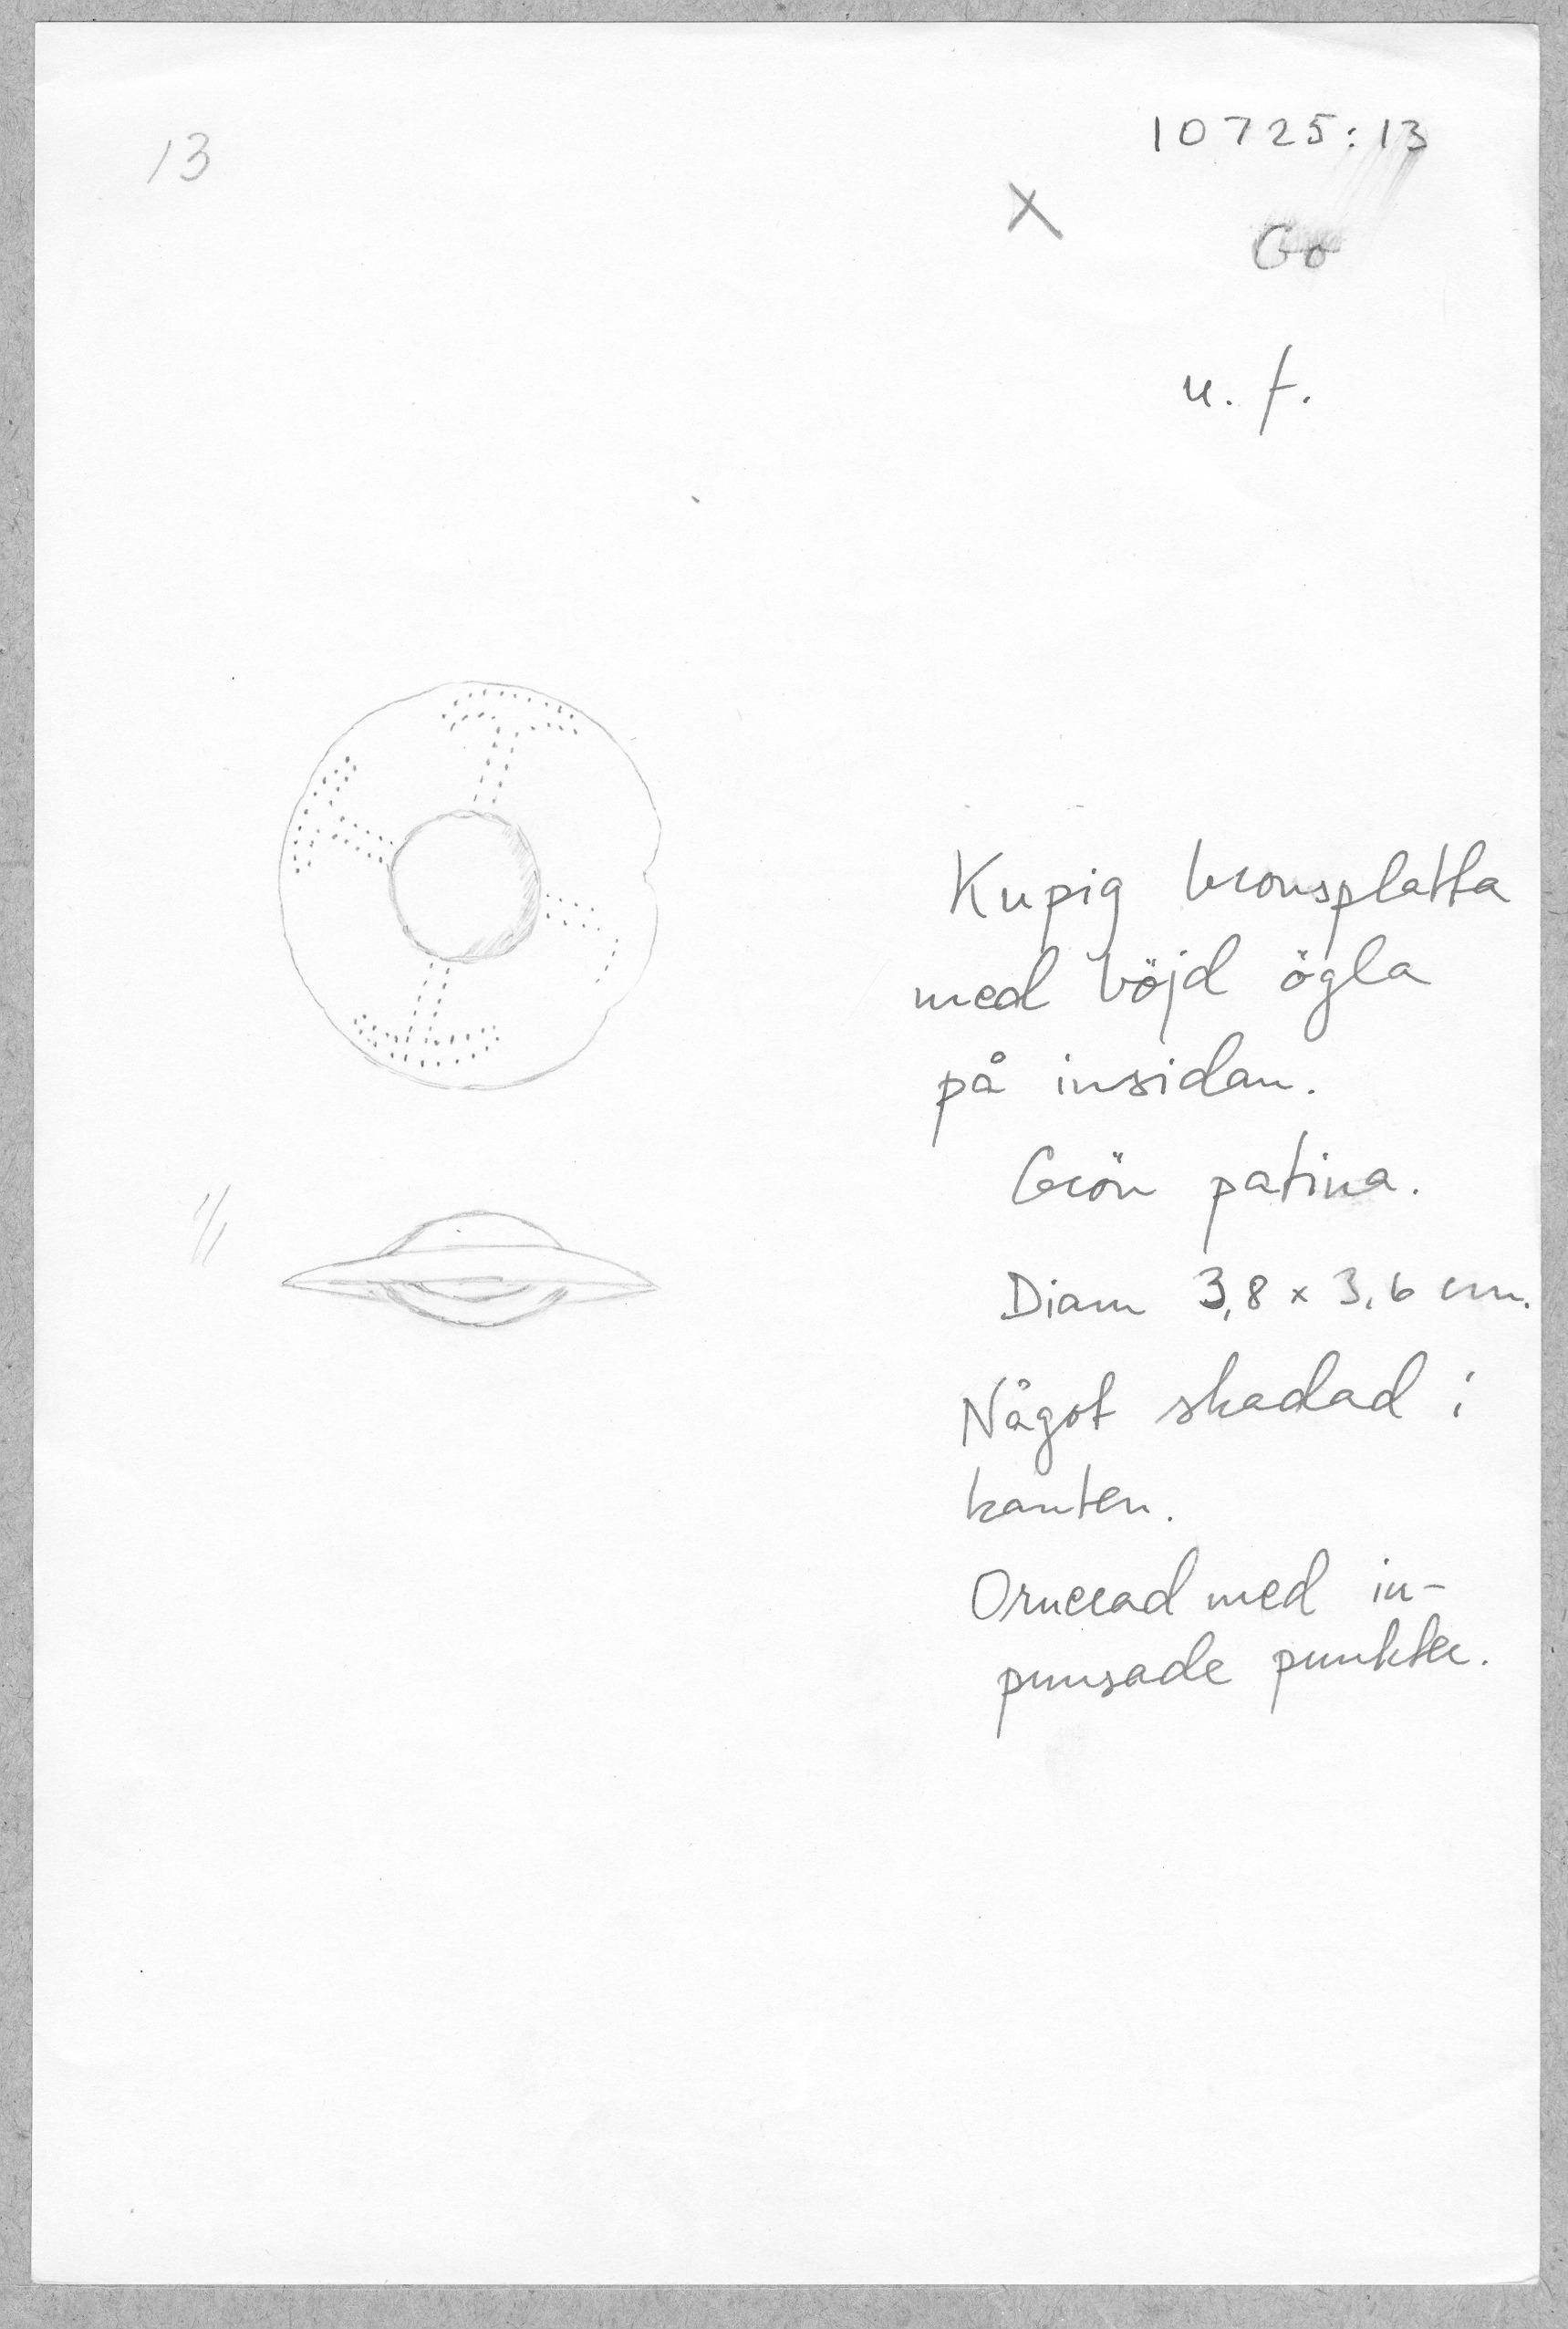 13
10725:13
X
Go
u. f.
Kupig bronsplatta
med böjd ögla
på insidan.
Grön patina.
1/1
Diam 3,8 x 3,6 cm.
Något skadad i
kanten.
Ornerad med in-
punsade punkter.